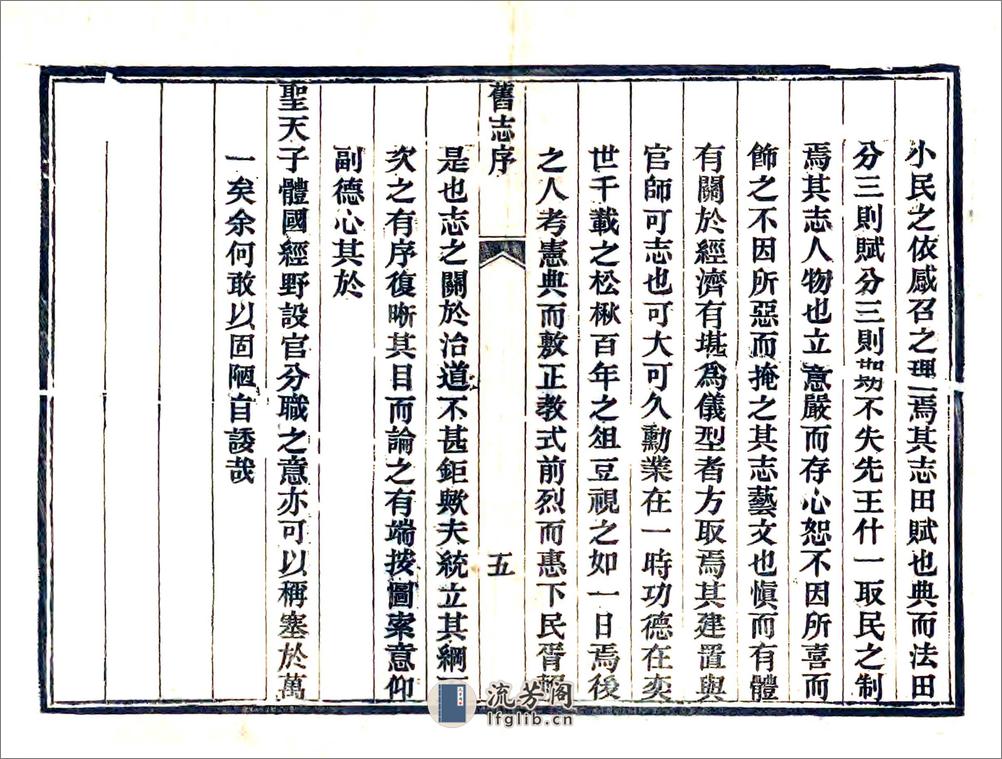 小民之依感召之理一焉其志田賦也典而法田
分三則賦分三則勘不失先王什一取民之制
焉其志人物也立意嚴而存心恕不因所喜而
飾之不因所惡而掩之其志藝文也愼而有體
有關於經濟有堪爲儀型者方取焉其建置與
官師可志也可大可久勳業在一時功德在奕
世千載之松楸百年之俎豆視之如一日焉後
之人考憲典而敷正教式前烈而惠下民胥賴
舊志序
五
是也志之關於治道不甚鉅歟夫統立其綱
次之有序復晰其目而論之有端按圖索意仰
副德心其於
聖天子體國經野設官分職之意亦可以稱塞於萬
一矣余何敢以固陋自諉哉
流芳阁
lfglib.cn